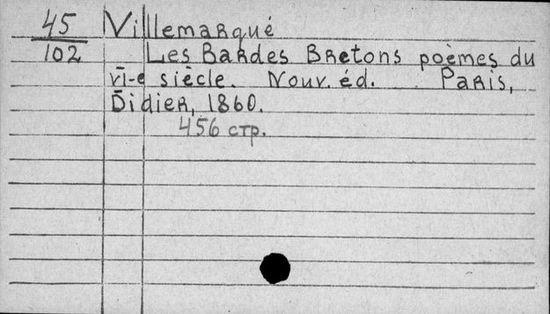 45
102
Villemarqué
Les Bardes Bretons poèmes du
VI-e siècle. Nouv. éd. Paris,
Didier, 1860.
456 стр.